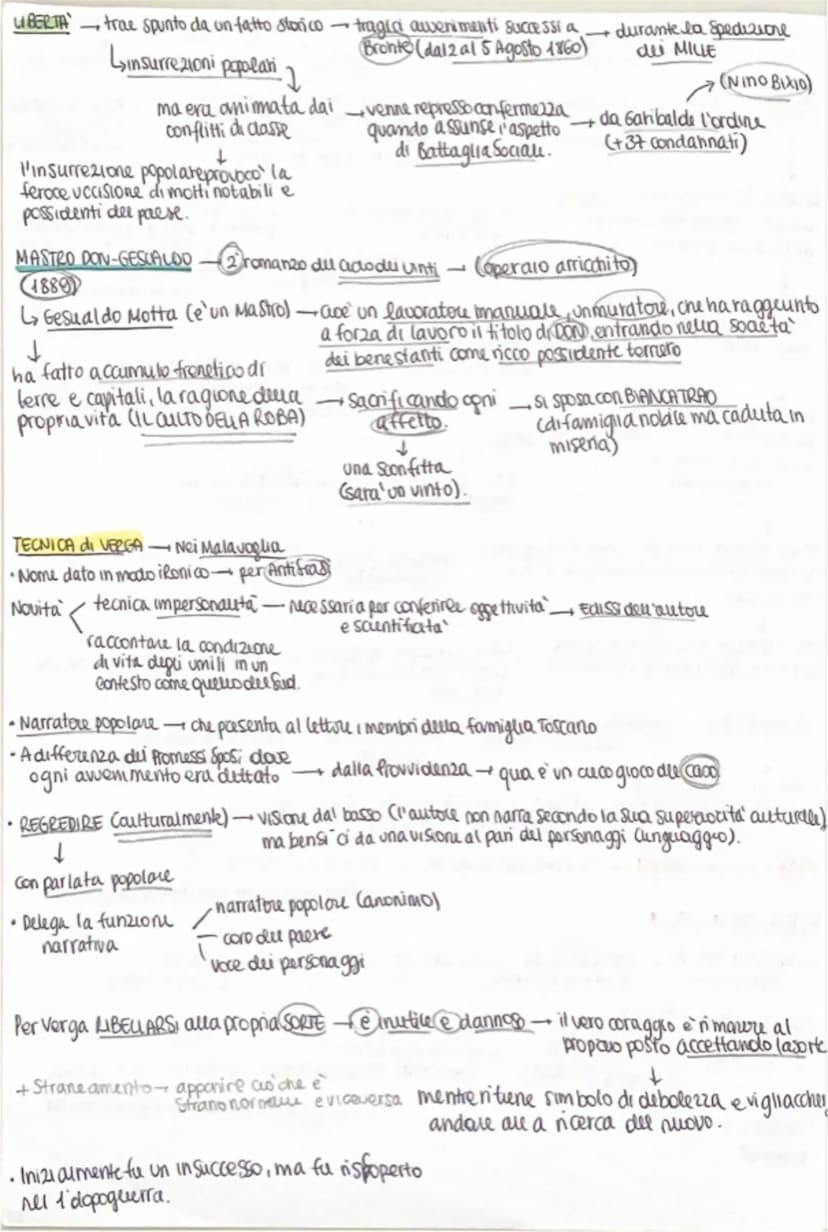 LIBERTÀ → trae spunto da un fatto storico → tragici avvenimenti successi a Bronte (dal 2 al 5 Agosto 1860) → durante la Spedizione dei MILLE
↳ insurrezioni popolari
ma era animata dai conflitti di classe → venne represso con fermezza quando assunse l'aspetto di Battaglia Sociale. → da Garibaldi l'ordine (+37 condannati) → (NINO BIXIO)
↓
l'insurrezione popolare provocò la
feroce uccisione di molti notabili e
possidenti del paese.
MASTRO DON-GESUALDO → 2° romanzo del ciclo dei vinti → (operaio arricchito)
(1889)
↳ Gesualdo Motta (è un Mastro) → cioè un lavoratore manuale, un muratore, che ha raggiunto
a forza di lavoro il titolo di DON, entrando nella società
dei benestanti come ricco possidente terriero
↓
ha fatto accumulo frenetico di
terre e capitali, la ragione della
propria vita (IL CULTO DELLA ROBA) → Sacrificando ogni affetto. → si sposa con BIANCA TRAO
(di famiglia nobile ma caduta in
miseria)
↓
una sconfitta
(sarà un vinto).
TECNICA di VERGA → Nei Malavoglia
• Nome dato in modo ironico → per Antifrasi
Novità tecnica impersonalità → necessaria per conferire oggettività e scientificità → Eclissi dell'autore
raccontare la condizione
di vita degli umili in un
contesto come quello del Sud.
• Narratore popolare → che presenta al lettore i membri della famiglia Toscano
• A differenza dei Promessi Sposi dove
ogni avvenimento era dettato → dalla Provvidenza → qua è un cieco gioco del caso
• REGREDIRE (culturalmente) → visione dal basso (l'autore non narra secondo la sua superiorità culturale)
ma bensì ci da una visione al pari dei personaggi (linguaggio).
↓
con parlata popolare
• Delega la funzione
narrativa
narratore popolare (anonimo)
coro del paese
voce dei personaggi
Per Verga RIBELLARSI alla propria SORTE → è inutile e dannoso → il vero coraggio è rimanere al
proprio posto accettando la sorte
↓
+ Straneamento → apparire ciò che è
strano normale e viceversa
mentre ritiene simbolo di debolezza e vigliaccheri
andare alla ricerca del nuovo.
• Inizialmente fu un insuccesso, ma fu riscoperto
nel 1° dopoguerra.